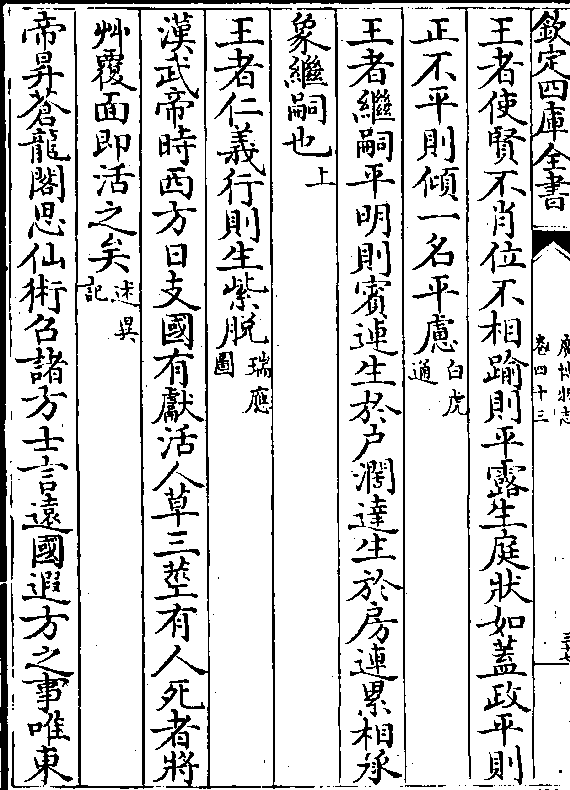 欽定四庫全書
廣博物志
卷四十三
王者使賢不肖位不相踰則平露生庭狀如蓋政平則
正不平則傾一名平慮白虎通
王者繼嗣平明則賓連生於户濶達生於房連累相承
象繼嗣也上
王者仁義行則生紫脱瑞應圖
漢武帝時西方日支國有獻活人草三莖有人死者將
艸覆面即活之矣述異記
帝昇蒼龍閣思仙術召諸方士言遠國遐方之事唯東